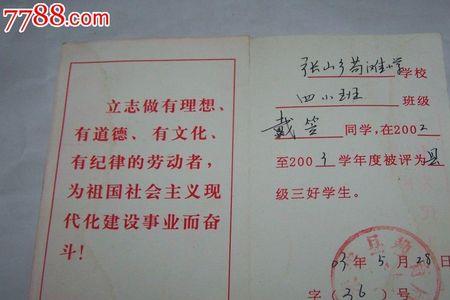 7788.com
立志做有理想、
有道德、有文化、
有纪律的劳动者，
为祖国社会主义现
代化建设事业而奋
斗！
张山乡苟滩小学学校
四小班班级
戴签同学，在2002
至2003学年度被评为县
级三好学生。
03年5月28日
字(36)号